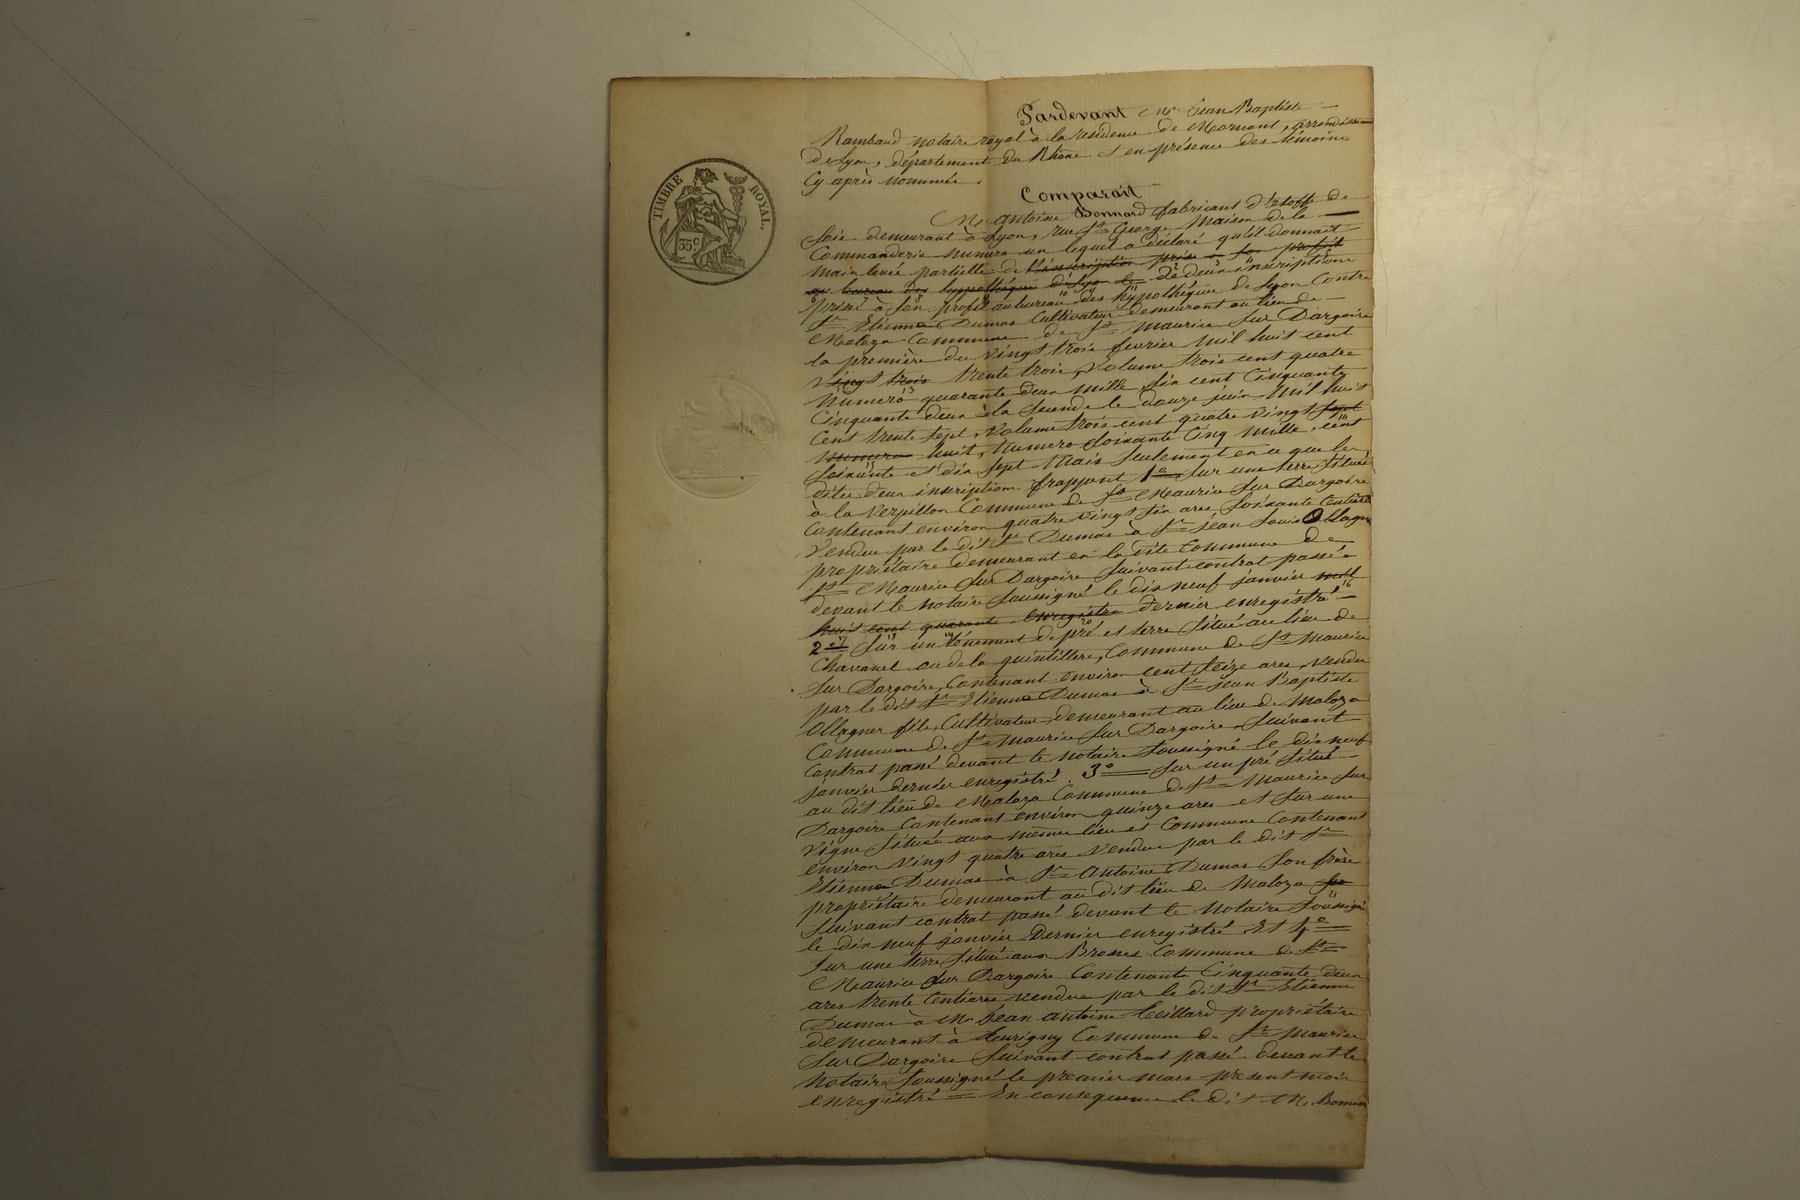 Pardevant Me Jean Baptiste
Rambaud notaire royal à la residence de Mornant, arrondissemt
de Lyon, département du Rhône et en présence des témoins
Cy après nommés.
TIMBRE ROYAL
35 c
Comparait
Mr. antoine Bonnard fabricant d'Etoffe de
Soie demeurant à Lyon, rue St George Maison de la
Commanderie numero un lequel a déclaré qu'il donnait
main levée partielle de l'inscription prise a son profit
au bureau des hypothèques de Lyon le de deux inscriptions
prises à son profit au bureau des hypothèques de Lyon Contre
Sr Etienne Dumas Cultivateur demeurant au lieu de
Maloza Commune de St Maurice Sur Dargoire
la première du vingt trois fevrier mil huit cent
vingt trois trente trois, volume trois cent quatre
numero quarante deux mille, six cent Cinquante
Cinquante deux la Seconde le douze juin Mil huit
Cent trente sept, Volume trois cent quatre vingt sept
numero huit, Numero Soixante Cinq mille, cent
Soixante et dix sept Mais Seulement en ce que les
dites deux inscriptions frappent 1o Sur une terre située
à la Verpillon Commune de St Maurice Sur Dargoire
Contenant environ quatre vingt six ares Soixante Centiares
Vendue par le dit Sr Dumas à Sr jean Louis Ollagner
propriétaire demeurant en la dite Commune de
St Maurice Sur Dargoire Suivant contrat passé
devant le notaire Soussigné le dix neuf janvier mil
huit cent quarante enregistré dernier enregistré
2o Sur un tenement de pré et terre Situé au lieu de
Chavanel ou de la quintillere, Commune de St Maurice
Sur Dargoire, Contenant environ cent Seize ares, Vendu
par le dit Sr Etienne Dumas à Sr Jean Baptiste
Ollagner fils, Cultivateur demeurant au lieu de Maloza
Commune de St Maurice Sur Dargoire, Suivant
Contrat passé devant le notaire Soussigné le dix neuf
janvier dernier enregistré. 3o Sur un pré Situé
au dit lieu de Maloza Commune de St Maurice Sur
Dargoire Contenant environ quinze ares et Sur une
Vigne Située aux mêmes lieu et Commune Contenant
environ vingt quatre ares Vendue par le dit Sr
Etienne Dumas à Sr Antoine Dumas Son frère
propriétaire demeurant au dit lieu de Maloza
Suivant contrat passé devant le notaire Soussigné
le dix neuf janvier Dernier enregistré Et 4o
Sur une terre Située aux Brosses Commune de St
Maurice Sur Dargoire Contenante Cinquante deux
ares trente Centiares vendue par le dit Sr Etienne
Dumas à Mr Jean antoine Teillard propriétaire
demeurant à fleurigny Commune de St Maurice
Sur Dargoire Suivant contrat passé devant le
Notaire Soussigné le premier mars présent mois
enregistré En consequence le dit Mr. Bonnard